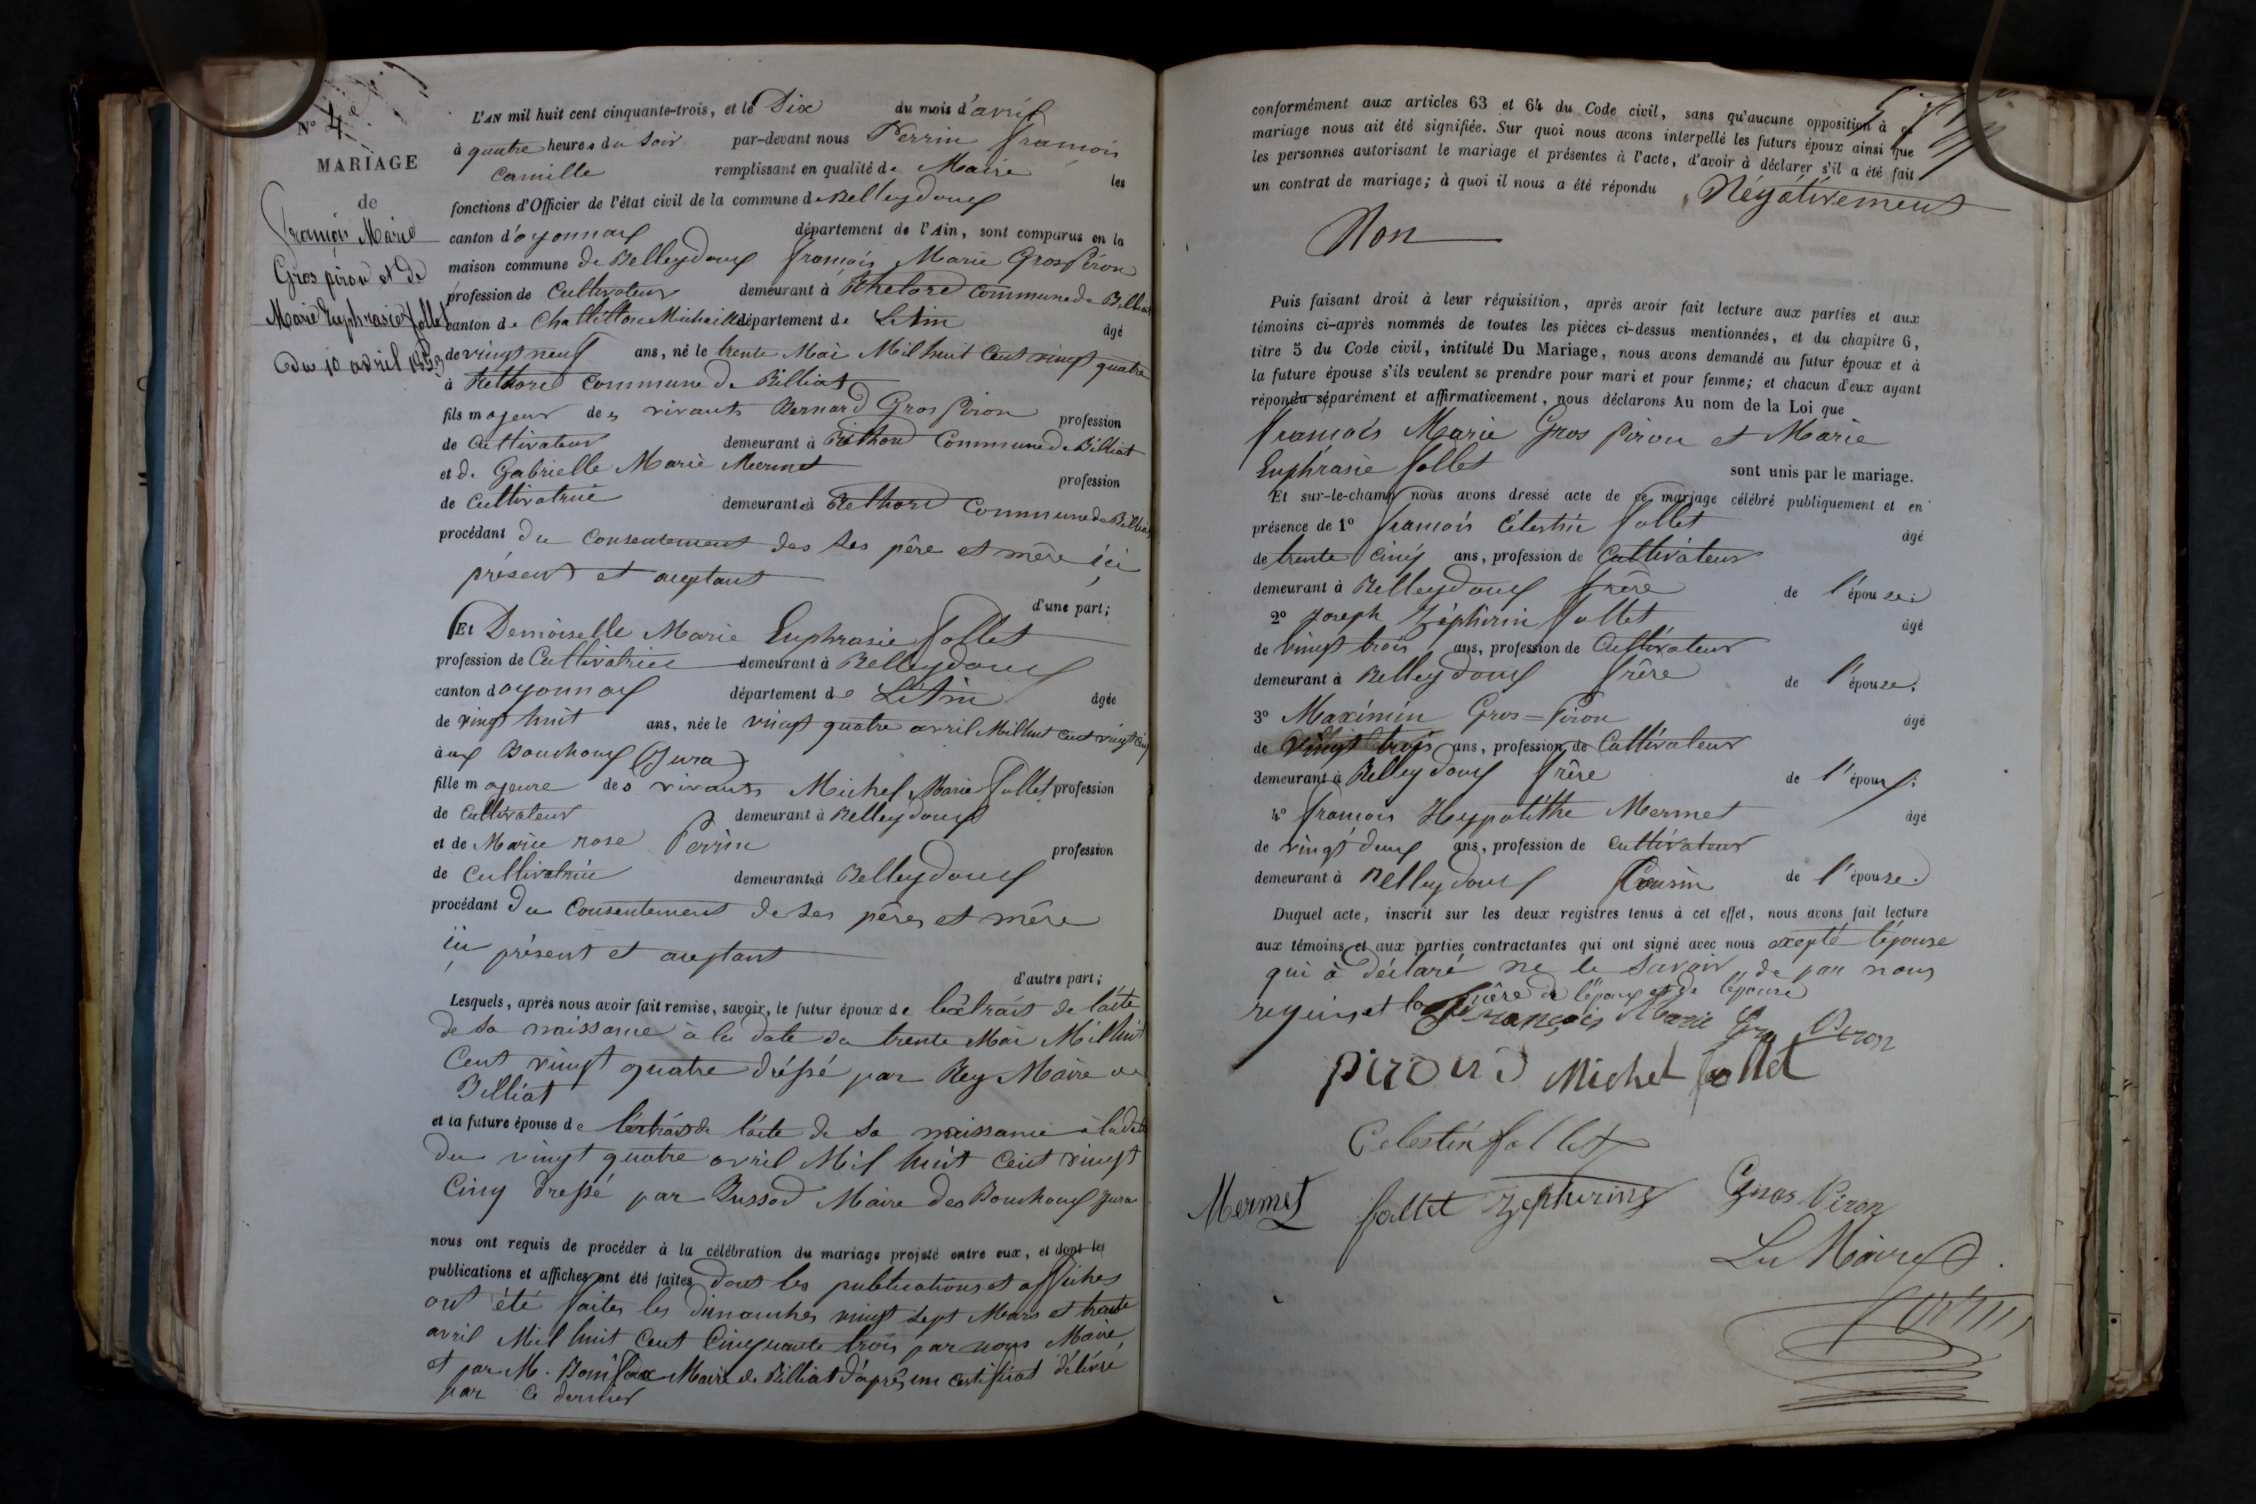 N° 4e
MARIAGE
de
François Marie
Gros piron et de
Marie Euphrasie follet
du 10 avril 1853
L'AN mil huit cent cinquante-trois, et le Dix du mois d'avril
à quatre heures du Soir par-devant nous Perrin françois
Camille remplissant en qualité de Maire les
fonctions d'Officier de l'état civil de la commune de Belleydoux
canton d'oyonnax département de l'Ain, sont comparus en la
maison commune de Belleydoux françois Marie Gros Piron
profession de Cultivateur demeurant à Rhetord commune de Billiat
canton de Chattillon Michaille département de L'Ain âgé
de vingt neuf ans, né le trente Mai Mil huit Cent vingt quatre
à Rethord Commune de Billiat
fils majeur des vivants Bernard Gros Piron profession
de Cultivateur demeurant à Rethord Commune de Billiat
et de Gabrielle Marie Mermet profession
de Cultivatrice demeurant à Rethord Commune de Billiat
procédant du Consentement des ses père et mère ici
présent et aceptant
d'une part;
Et Demoiselle Marie Euphrasie follet
profession de Cultivatrice demeurant à Belleydoux
canton d'oyonnax département de L'Ain âgée
de vingt huit ans, née le vingt quatre avril Mil huit Cent vingt cinq
aux Bouchoux (Jura)
fille majeure des vivants Michel Marie follet profession
de Cultivateur demeurant à Belleydoux
et de Marie rose Perrin profession
de Cultivatrice demeurant à Belleydoux
procédant du Consentement de ses père et mère
ici présent et aceptant
d'autre part;
Lesquels, après nous avoir fait remise, savoir, le futur époux de l'extrait de l'acte
de sa naissance à la date du trente Mai Mil huit
Cent vingt quatre dressé par Rey Maire de
Billiat
et la future épouse de l'extrait de l'acte de sa naissance à la date
du vingt quatre avril Mil huit Cent vingt
Cinq dressé par Bussod Maire des Bouchoux Jura
nous ont requis de procéder à la célébration du mariage projeté entre eux, et dont les
publications et affiches ont été faites dont les publications et affiches
ont été faites les dimanches vingt sept Mars et trente
avril Mil huit Cent Cinquante trois par nous Maire,
et par M. Bonifax Maire de Billiat d'après un certifiat délivré
par Ce dernier
conformément aux articles 63 et 64 du Code civil, sans qu'aucune opposition à ce
mariage nous ait été signifiée. Sur quoi nous avons interpellé les futurs époux ainsi que
les personnes autorisant le mariage et présentes à l'acte, d'avoir à déclarer s'il a été fait
un contrat de mariage; à quoi il nous a été répondu Négativement
Non
Puis faisant droit à leur réquisition, après avoir fait lecture aux parties et aux
témoins ci-après nommés de toutes les pièces ci-dessus mentionnées, et du chapitre 6,
titre 5 du Code civil, intitulé Du Mariage, nous avons demandé au futur époux et à
la future épouse s'ils veulent se prendre pour mari et pour femme; et chacun d'eux ayant
répondu séparément et affirmativement, nous déclarons Au nom de la Loi que
françois Marie Gros Piron et Marie
Euphrasie follet sont unis par le mariage.
Et sur-le-champ nous avons dressé acte de ce mariage célébré publiquement et en
présence de 1° françois Célestin follet âgé
de trente cinq ans, profession de Cultivateur
demeurant à Belleydoux frère de l'épouse.
2° Joseph Zéphirin follet âgé
de vingt trois ans, profession de Cultivateur
demeurant à Belleydoux frère de l'épouse.
3° Maximin Gros=Piron âgé
de vingt trois ans, profession de Cultivateur
demeurant à Belleydoux frère de l'époux.
4° françois Hyppolithe Mermet âgé
de vingt deux ans, profession de Cultivateur
demeurant à Belleydoux Cousin de l'épouse.
Duquel acte, inscrit sur les deux registres tenus à cet effet, nous avons fait lecture
aux témoins et aux parties contractantes qui ont signé avec nous exepté l'épouse
qui a déclaré ne le Savoir de par nous
requis et la mère de l'époux et de l'épouse
françois Marie Gro Piron
pirond Michel follet
Celestin follet
Mermet follet Zephirins Gros Piron
Le Maire
Perrin